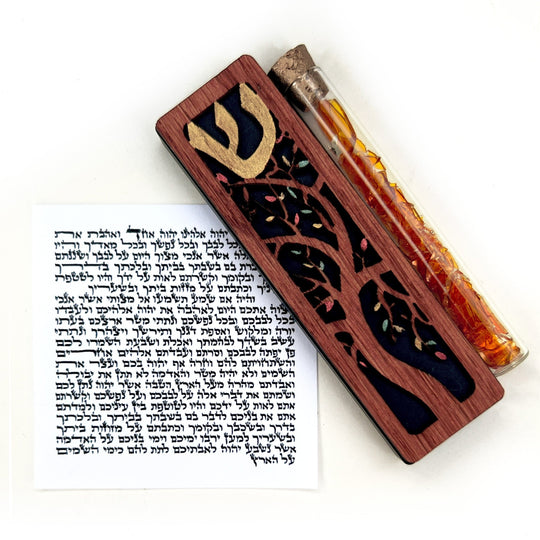 ש
יהוה אלהינו יהוה אחד ואהבת את
לבבך ובכל נפשך ובכל מאדך והיו
אשר אנכי מצוך היום על לבבך ושננתם
בם בשבתך בביתך ובלכתך בדרך
ובקומך וקשרתם לאות על ידך והיו לטטפת
וכתבתם על מזזות ביתך ובשעריך
והיה אם שמע תשמעו אל מצותי אשר אנכי
אתכם היום לאהבה את יהוה אלהיכם ולעבדו
בכל לבבכם ובכל נפשכם ונתתי מטר ארצכם בעתו
יורה ומלקוש ואספת דגנך ותירשך ויצהרך ונתתי
עשב בשדך לבהמתך ואכלת ושבעת השמרו לכם
פן יפתה לבבכם וסרתם ועבדתם אלהים אחרים
והשתחויתם להם וחרה אף יהוה בכם ועצר את
השמים ולא יהיה מטר והאדמה לא תתן את יבולה
ואבדתם מהרה מעל הארץ הטבה אשר יהוה נתן לכם
ושמתם את דברי אלה על לבבכם ועל נפשכם וקשרתם
אתם לאות על ידכם והיו לטוטפת בין עיניכם ולמדתם
אתם את בניכם לדבר בם בשבתך בביתך ובלכתך
בדרך ובשכבך ובקומך וכתבתם על מזוזות ביתך
ובשעריך למען ירבו ימיכם וימי בניכם על האדמה
אשר נשבע יהוה לאבתיכם לתת להם כימי השמים
על הארץ